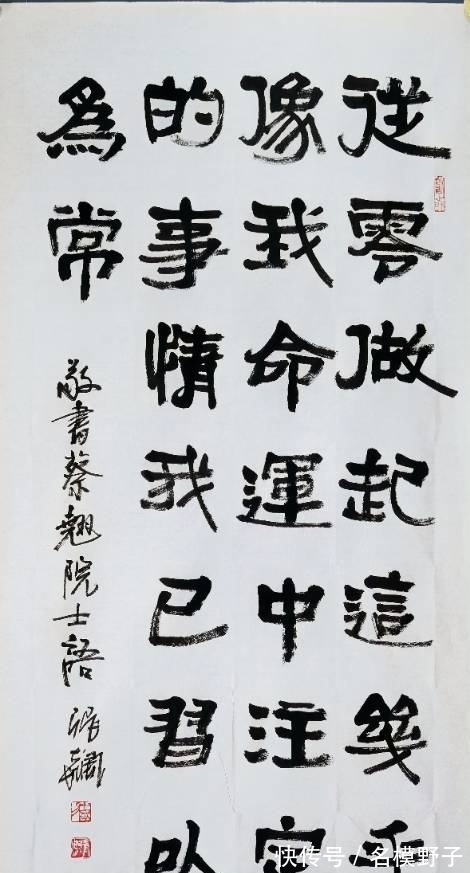 從零做起這幾乎
像我命運中注定
的事情我已習以
為常
敬書蔡翹院士語
快传号／名模野子